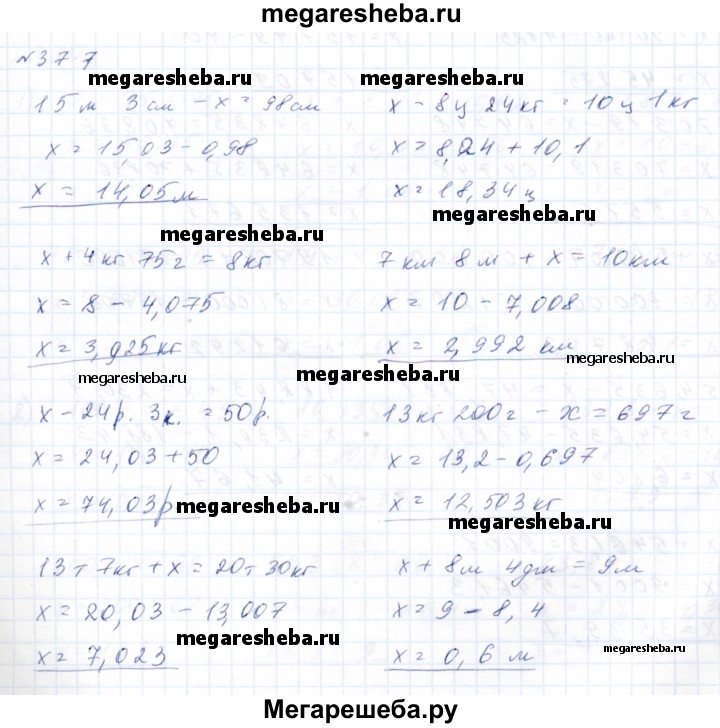 megaresheba.ru
№377
megaresheba.ru megaresheba.ru
15 м 3 см - x = 98 см
x = 15,03 - 0,98
x = 14,05 м
x - 8 ц 24 кг = 10 ц 1 кг
x = 8,24 + 10,1
x = 18,34 ц
megaresheba.ru
megaresheba.ru
x + 4 кг 75 г = 8 кг
x = 8 - 4,075
x = 3,925 кг
7 км 8 м + x = 10 км
x = 10 - 7,008
x = 2,992 км
megaresheba.ru
megaresheba.ru
megaresheba.ru
x - 24 р. 3 к. = 50 р.
x = 24,03 + 50
x = 74,03 р
13 кг 200 г - x = 697 г
x = 13,2 - 0,697
x = 12,503 кг
megaresheba.ru
megaresheba.ru
13 т 7 кг + x = 20 т 30 кг
x = 20,03 - 13,007
x = 7,023
x + 8 м 4 дм = 9 м
x = 9 - 8,4
x = 0,6 м
megaresheba.ru
megaresheba.ru
Мегарешеба.ру